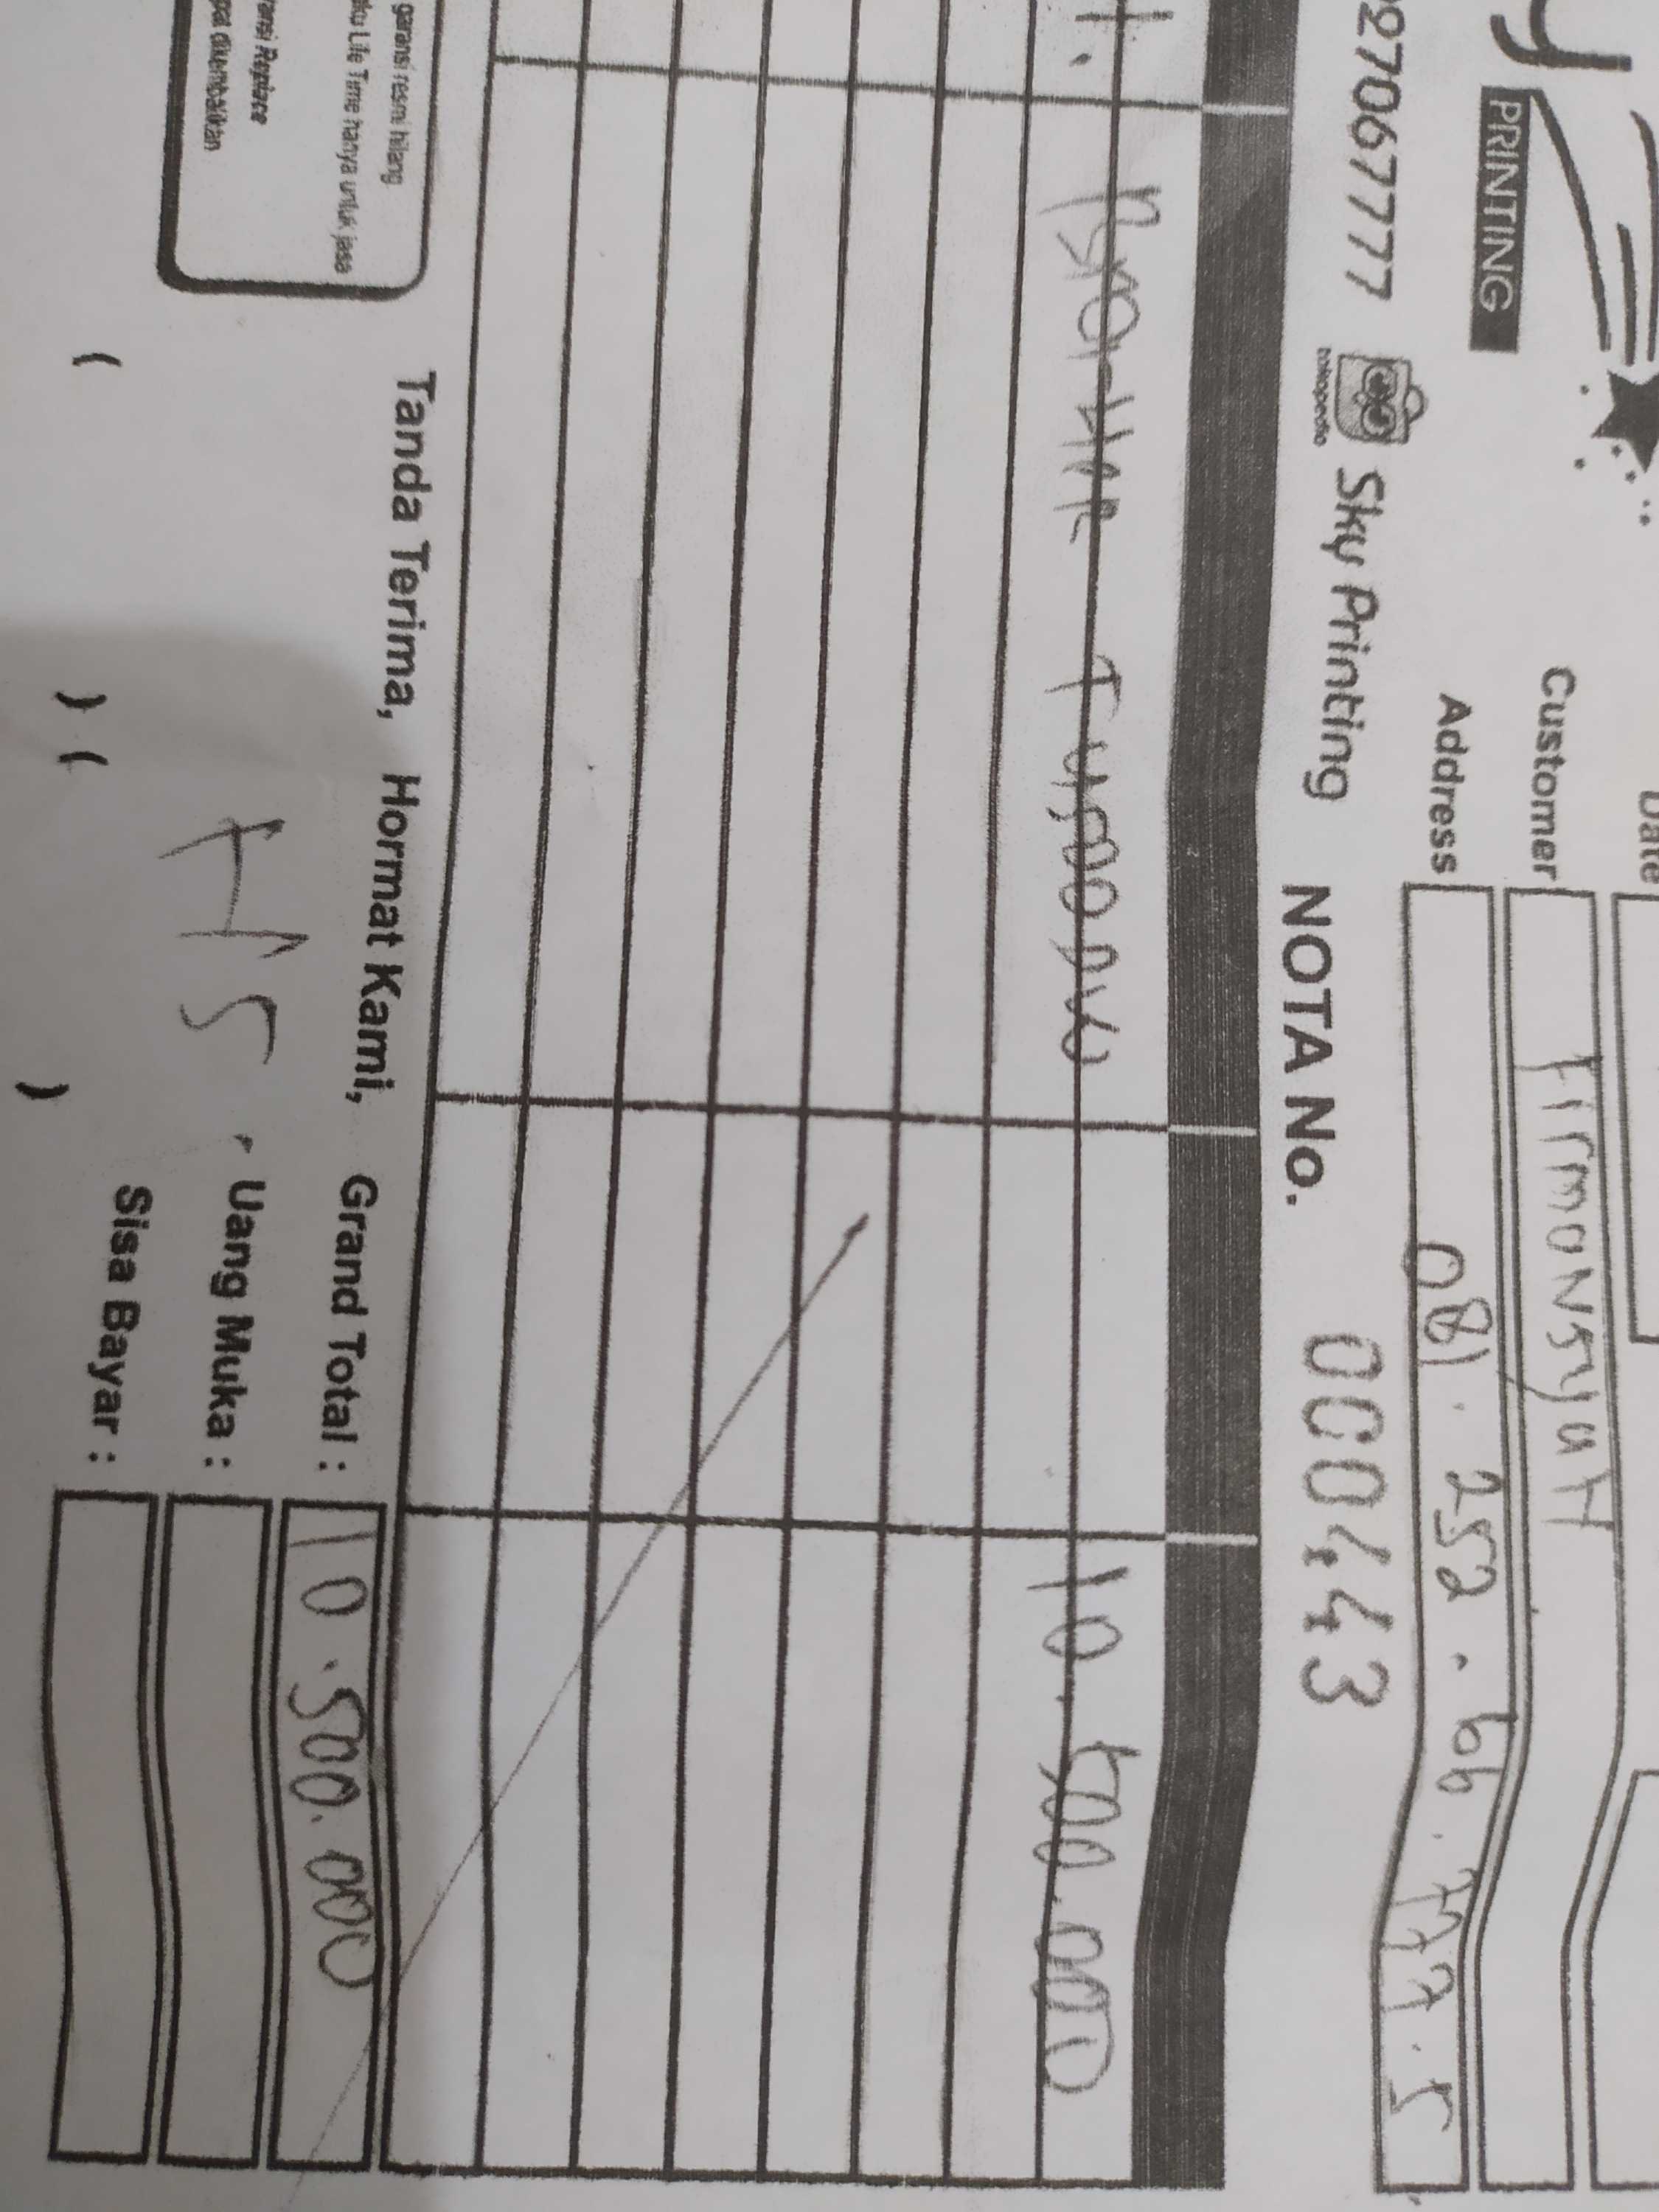 y
PRINTING
Date
Customer Firmansyah
Address 081.252.66.777.5
927067777 tokopedia Sky Printing NOTA No. 000443
10.500.000
Tanda Terima, Hormat Kami, Grand Total : 10.500.000
garansi resmi hilang
Life Time hanya untuk jasa
Replace
HS
Uang Muka :
Sisa Bayar :
( ) ( )